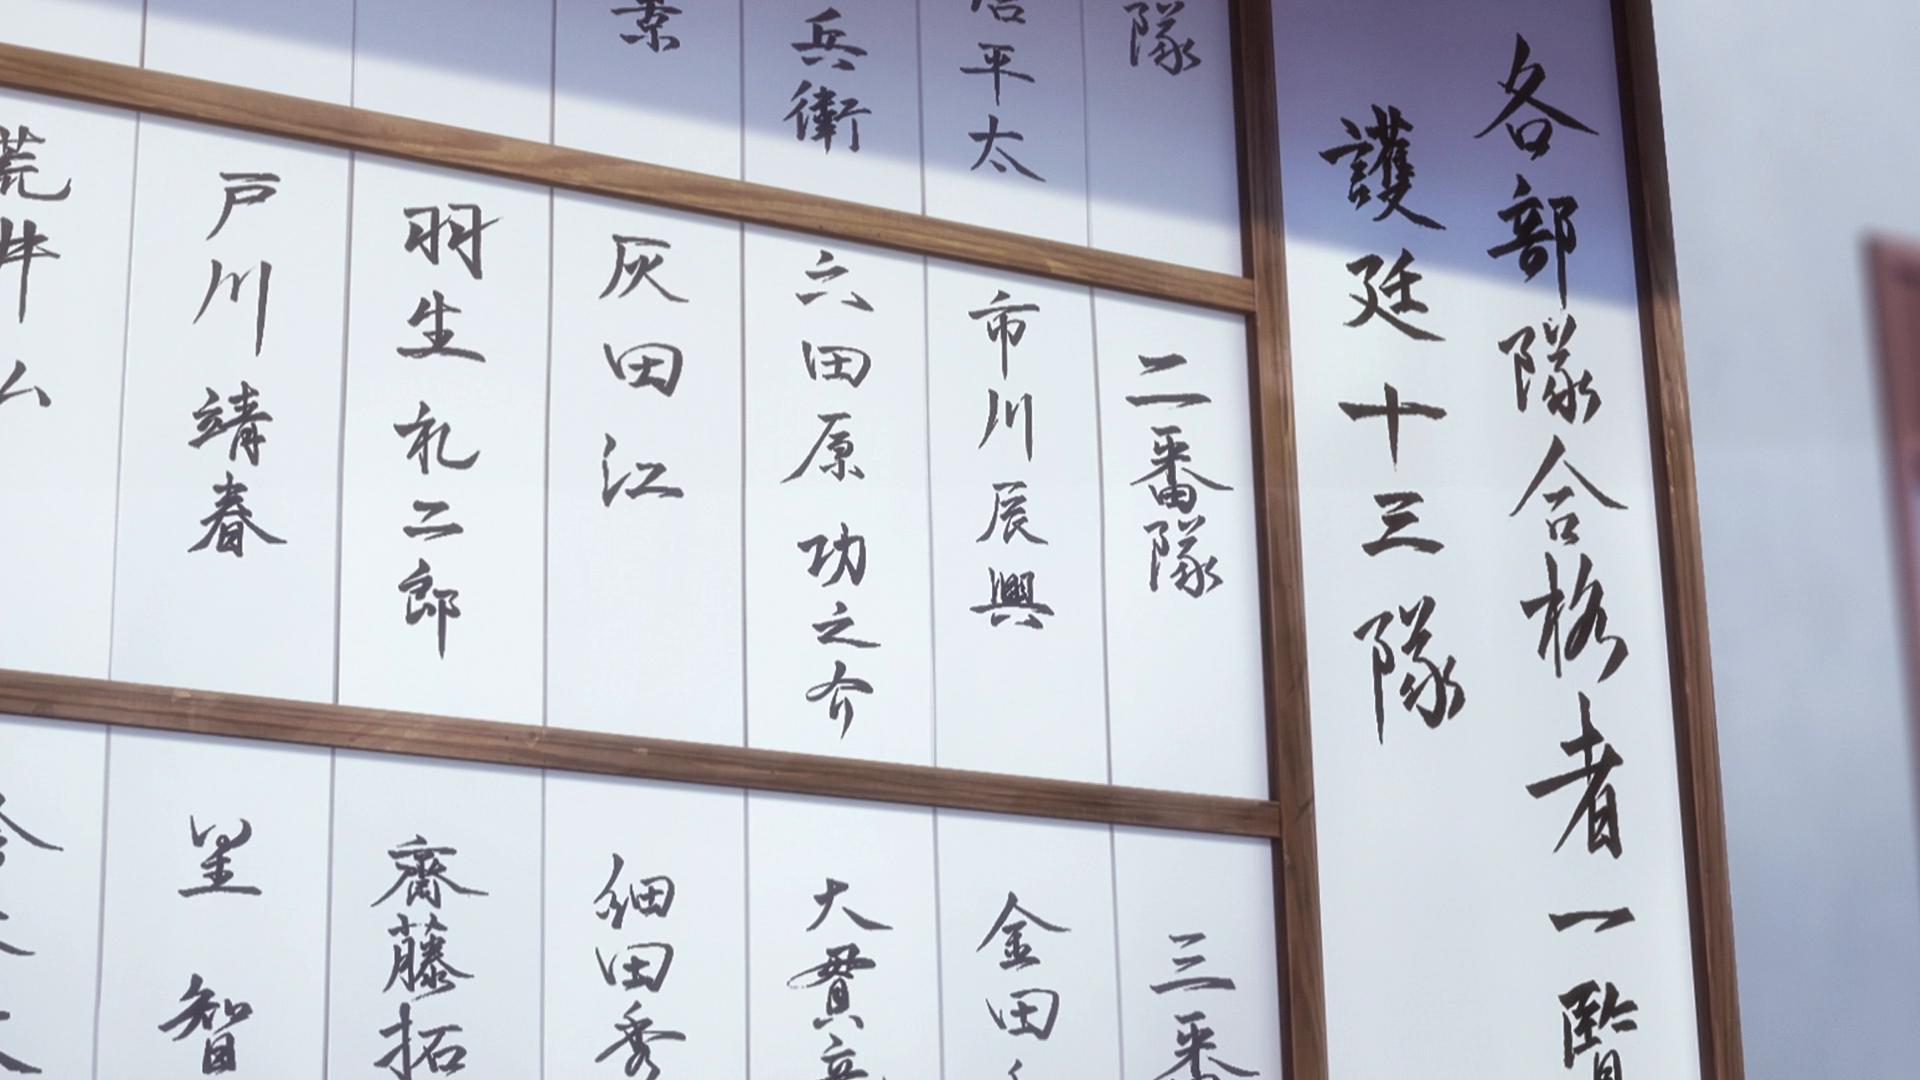 各部隊合格者一覧
護廷十三隊
隊
平太
兵衛
二番隊
市川辰興
六田原功之介
灰田江
羽生札二郎
戸川靖春
荒井ム
三番
金田
大貫
細田秀
齋藤拓
里智